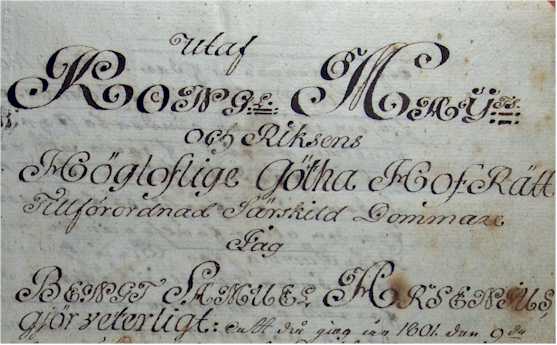 Utaf
Kongl. Maÿts.
och Riksens
Högloflige Götha Hof Rätt
Tillförordnad Särskild Dommare
Jag
BENGT SAMUEL HORSENIUS
gjör veterligt: att den 1801. den 9de